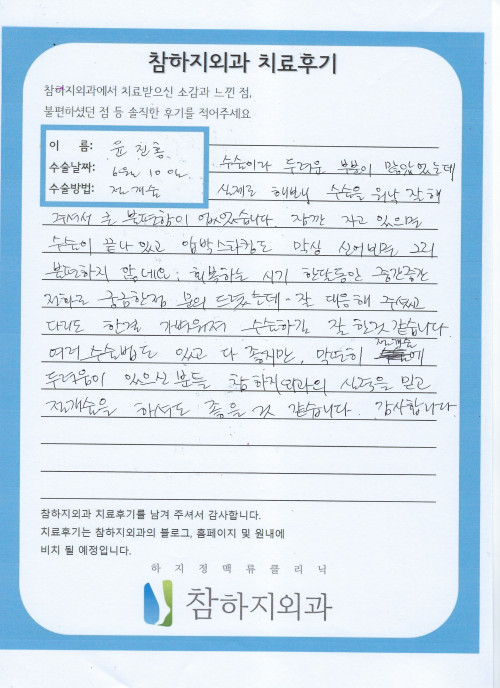 참하지외과 치료후기
참하지외과에서 치료받으신 소감과 느낀 점,
불편하셨던 점 등 솔직한 후기를 적어주세요
이 름: 윤진홍
수술날짜: 6월 10일
수술방법: 절개술
수술이라 두려운 부분이 많았었는데
실제로 해보니 수술을 워낙 잘해
주셔서 큰 불편함이 없었습니다. 잠깐 자고 있으면
수술이 끝나 있고 압박스타킹도 막상 신어보면 그리
불편하지 않네요; 회복하는 시기 한달동안 중간중간
전화로 궁금한점 문의 드렸는데 - 잘 대응해 주셨고
다리도 한결 가벼워져 수술하길 잘 한것 같습니다.
여러 수술법도 있고 다 좋지만, 막연히 절개술에
두려움이 있으신 분들 참하지외과의 실력을 믿고
절개술을 하셔도 좋을 것 같습니다. 감사합니다.
참하지외과 치료후기를 남겨 주셔서 감사합니다.
치료후기는 참하지외과의 블로그, 홈페이지 및 원내에
비치 될 예정입니다.
하지정맥류클리닉
참하지외과